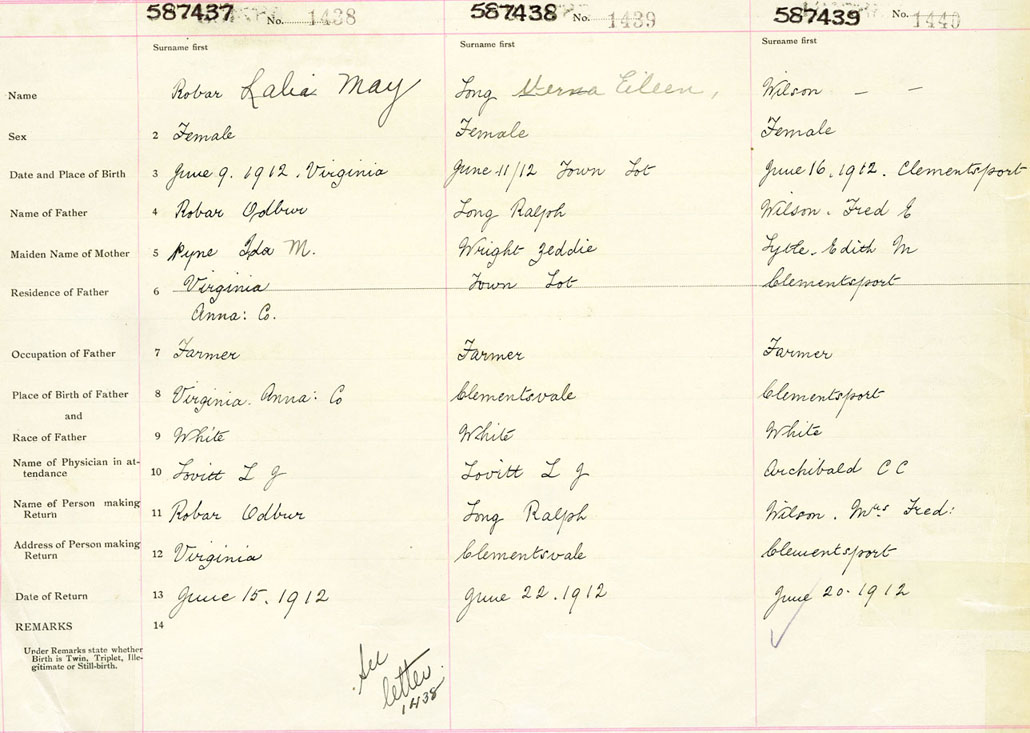 587437 No. 1438 587438 No. 1439 587439 No. 1440
Surname first Surname first Surname first
Name Robar Lalia May Long Verna Eileen, Wilson — —
Sex 2 Female Female Female
Date and Place of Birth 3 June 9. 1912. Virginia June 11/12 Town Lot June 16. 1912. Clementsport
Name of Father 4 Robar Odbur Long Ralph Wilson. Fred E
Maiden Name of Mother 5 Pyne Ida M. Wright Zeddie Lytle. Edith M
Residence of Father 6 Virginia Town Lot Clementsport
Anna: Co.
Occupation of Father 7 Farmer Farmer Farmer
Place of Birth of Father 8 Virginia. Anna: Co Clementsvale Clementsport
and
Race of Father 9 White White White
Name of Physician in at-
tendance 10 Lovitt L J Lovitt L J Archibald C C
Name of Person making
Return 11 Robar Odbur Long Ralph Wilson. Mrs Fred:
Address of Person making
Return 12 Virginia Clementsvale Clementsport
Date of Return 13 June 15. 1912 June 22. 1912 June 20. 1912
REMARKS 14
Under Remarks state whether
Birth is Twin, Triplet, Ille-
gitimate or Still-birth.
See
letter
1438